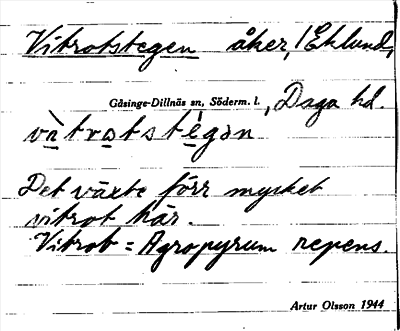 Vitrotstegen åker, i Eklund,
Gåsinge-Dillnäs sn, Söderm. l., Daga hd.
vìtrotstégən
Det växte förr mycket
vitrot här.
Vitrot = Agropyrum repens.
Artur Olsson 1944